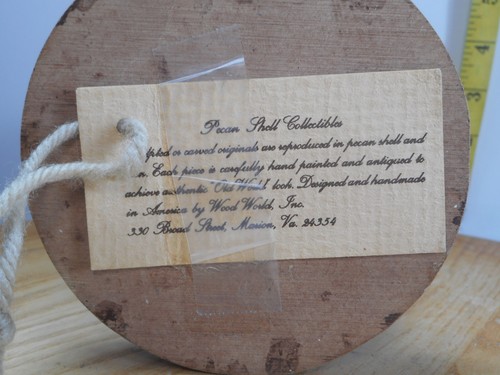 Pecan Shell Collectibles
are reproduced in pecan shell and
Each piece is carefully hand painted and antiqued to
achieve authentic "Old World" look. Designed and handmade
in America by Wood World, Inc.
330 Broad Street, Marion, Va. 24354